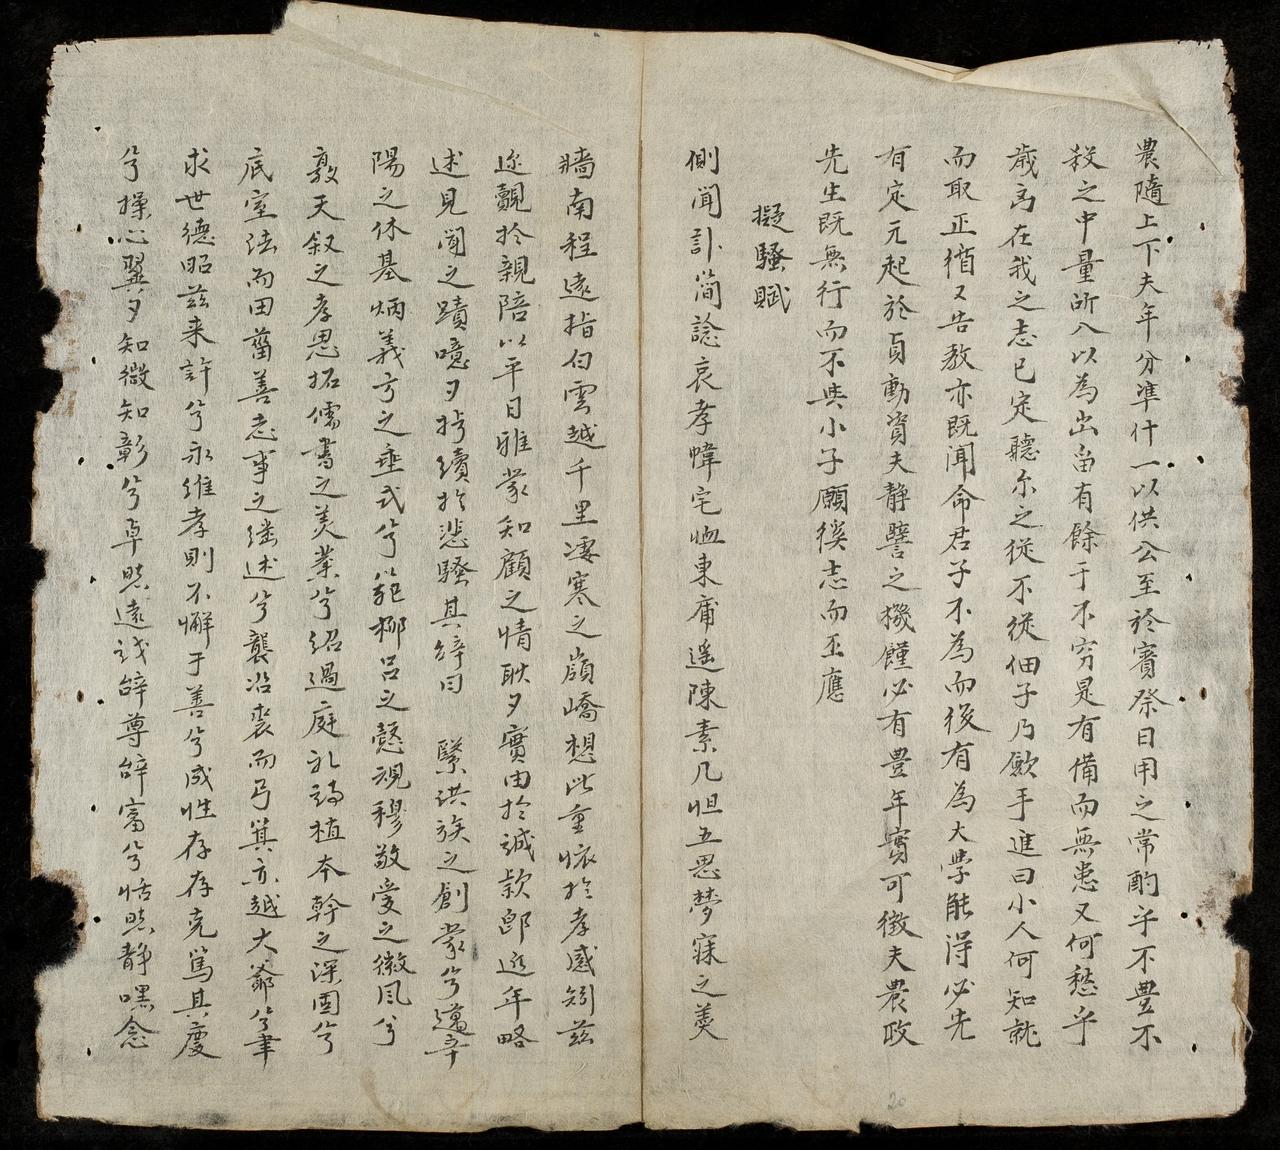 農隨上下夫年分準什一以供公至於賓祭日用之常酌乎不豊不
殺之中量所入以為出畜有餘于不穷是有備而無患又何愁乎
歲髙在我之志已定聽尔之従不従佃子乃歛手進曰小人何知就
而取正循又告教亦既聞命君子不為而後有為大學能得必先
有定元起於貞動資夫静譬之機饉必有豊年實可徴夫農政
先生既無行而不與小子願徯志而丕應
擬騷賦
側聞訃简諗哀孝幃宅岫東甫遥陳素几怛五思梦寐之羮
牆南程遠指白雲越千里凄寒之嶺嶠想此重懐扵孝感矧兹
迩覿扵親陪以平日雅蒙知顧之情耿夕實由扵誠款郎近年略
述見聞之蹟噫夕拧續扵悲騷其辞曰 繄洪族之創蒙兮邁辛
陽之休基炳義方之垂式兮範柳吕之懿規穆敬受之徽風兮
敦天叙之孝思拓儒書之美業兮紹過庭礼詩植本幹之深固兮
底室法而田菑善志事之继述兮襲冶裘而弓箕亦越大爺兮聿
求世德昭兹来許兮永维孝則不懈于善兮成性存存克篤其慶
兮操心翼夕知微知彰兮卓然遠识辞尊辞富兮恬然静嘿念